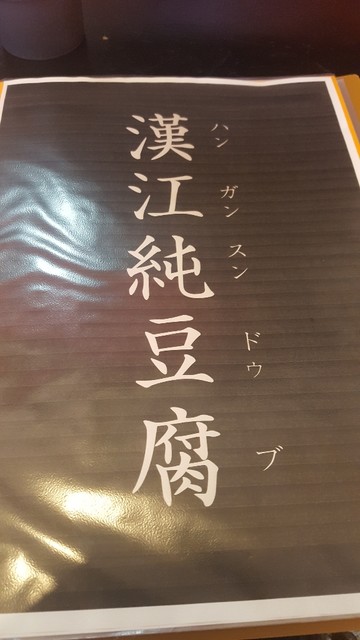 漢江純豆腐
ハンガンスンドゥブ